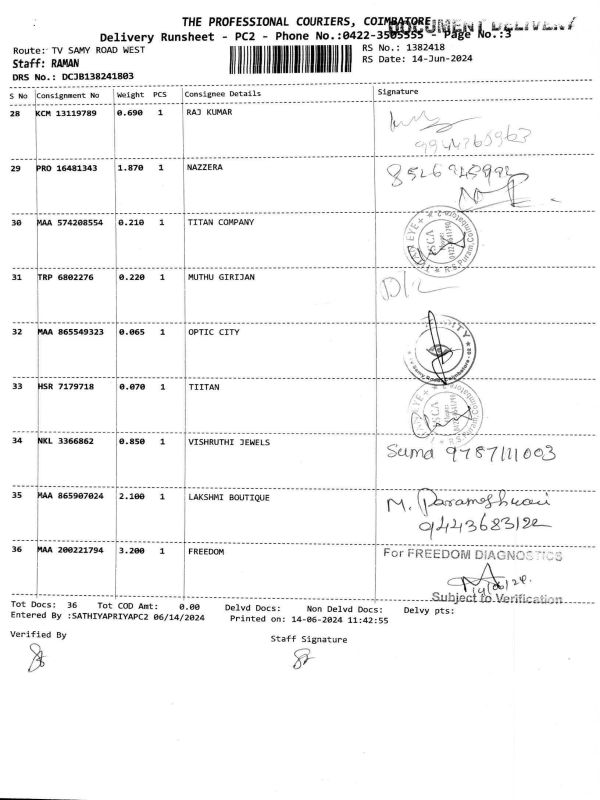 THE PROFESSIONAL COURIERS, COIMBATORE
DOCUMENT DELIVERY
Delivery Runsheet - PC2 - Phone No.:0422-3505555 - Page No.:3
Route: TV SAMY ROAD WEST
RS No.: 1382418
Staff: RAMAN
RS Date: 14-Jun-2024
DRS No.: DCJB138241803
S No Consignment No Weight PCS Consignee Details Signature
28 KCM 13119789 0.690 1 RAJ KUMAR
9944765963
29 PRO 16481343 1.870 1 NAZZERA
30 MAA 574208554 0.210 1 TITAN COMPANY
TITAN EYE+ R.S.Puram,Coimbatore-2
31 TRP 6802276 0.220 1 MUTHU GIRIJAN
D/L
32 MAA 865549323 0.065 1 OPTIC CITY
33 HSR 7179718 0.070 1 TIITAN
34 NKL 3366862 0.850 1 VISHRUTHI JEWELS
Suma 9787111003
35 MAA 865907024 2.100 1 LAKSHMI BOUTIQUE
M. Parameshwari
9443683122
36 MAA 200221794 3.200 1 FREEDOM
For FREEDOM DIAGNOSTICS
14/06/24.
Subject to Verification
Tot Docs: 36 Tot COD Amt: 0.00 Delvd Docs: Non Delvd Docs: Delvy pts:
Entered By :SATHIYAPRIYAPC2 06/14/2024 Printed on: 14-06-2024 11:42:55
Verified By
Staff Signature